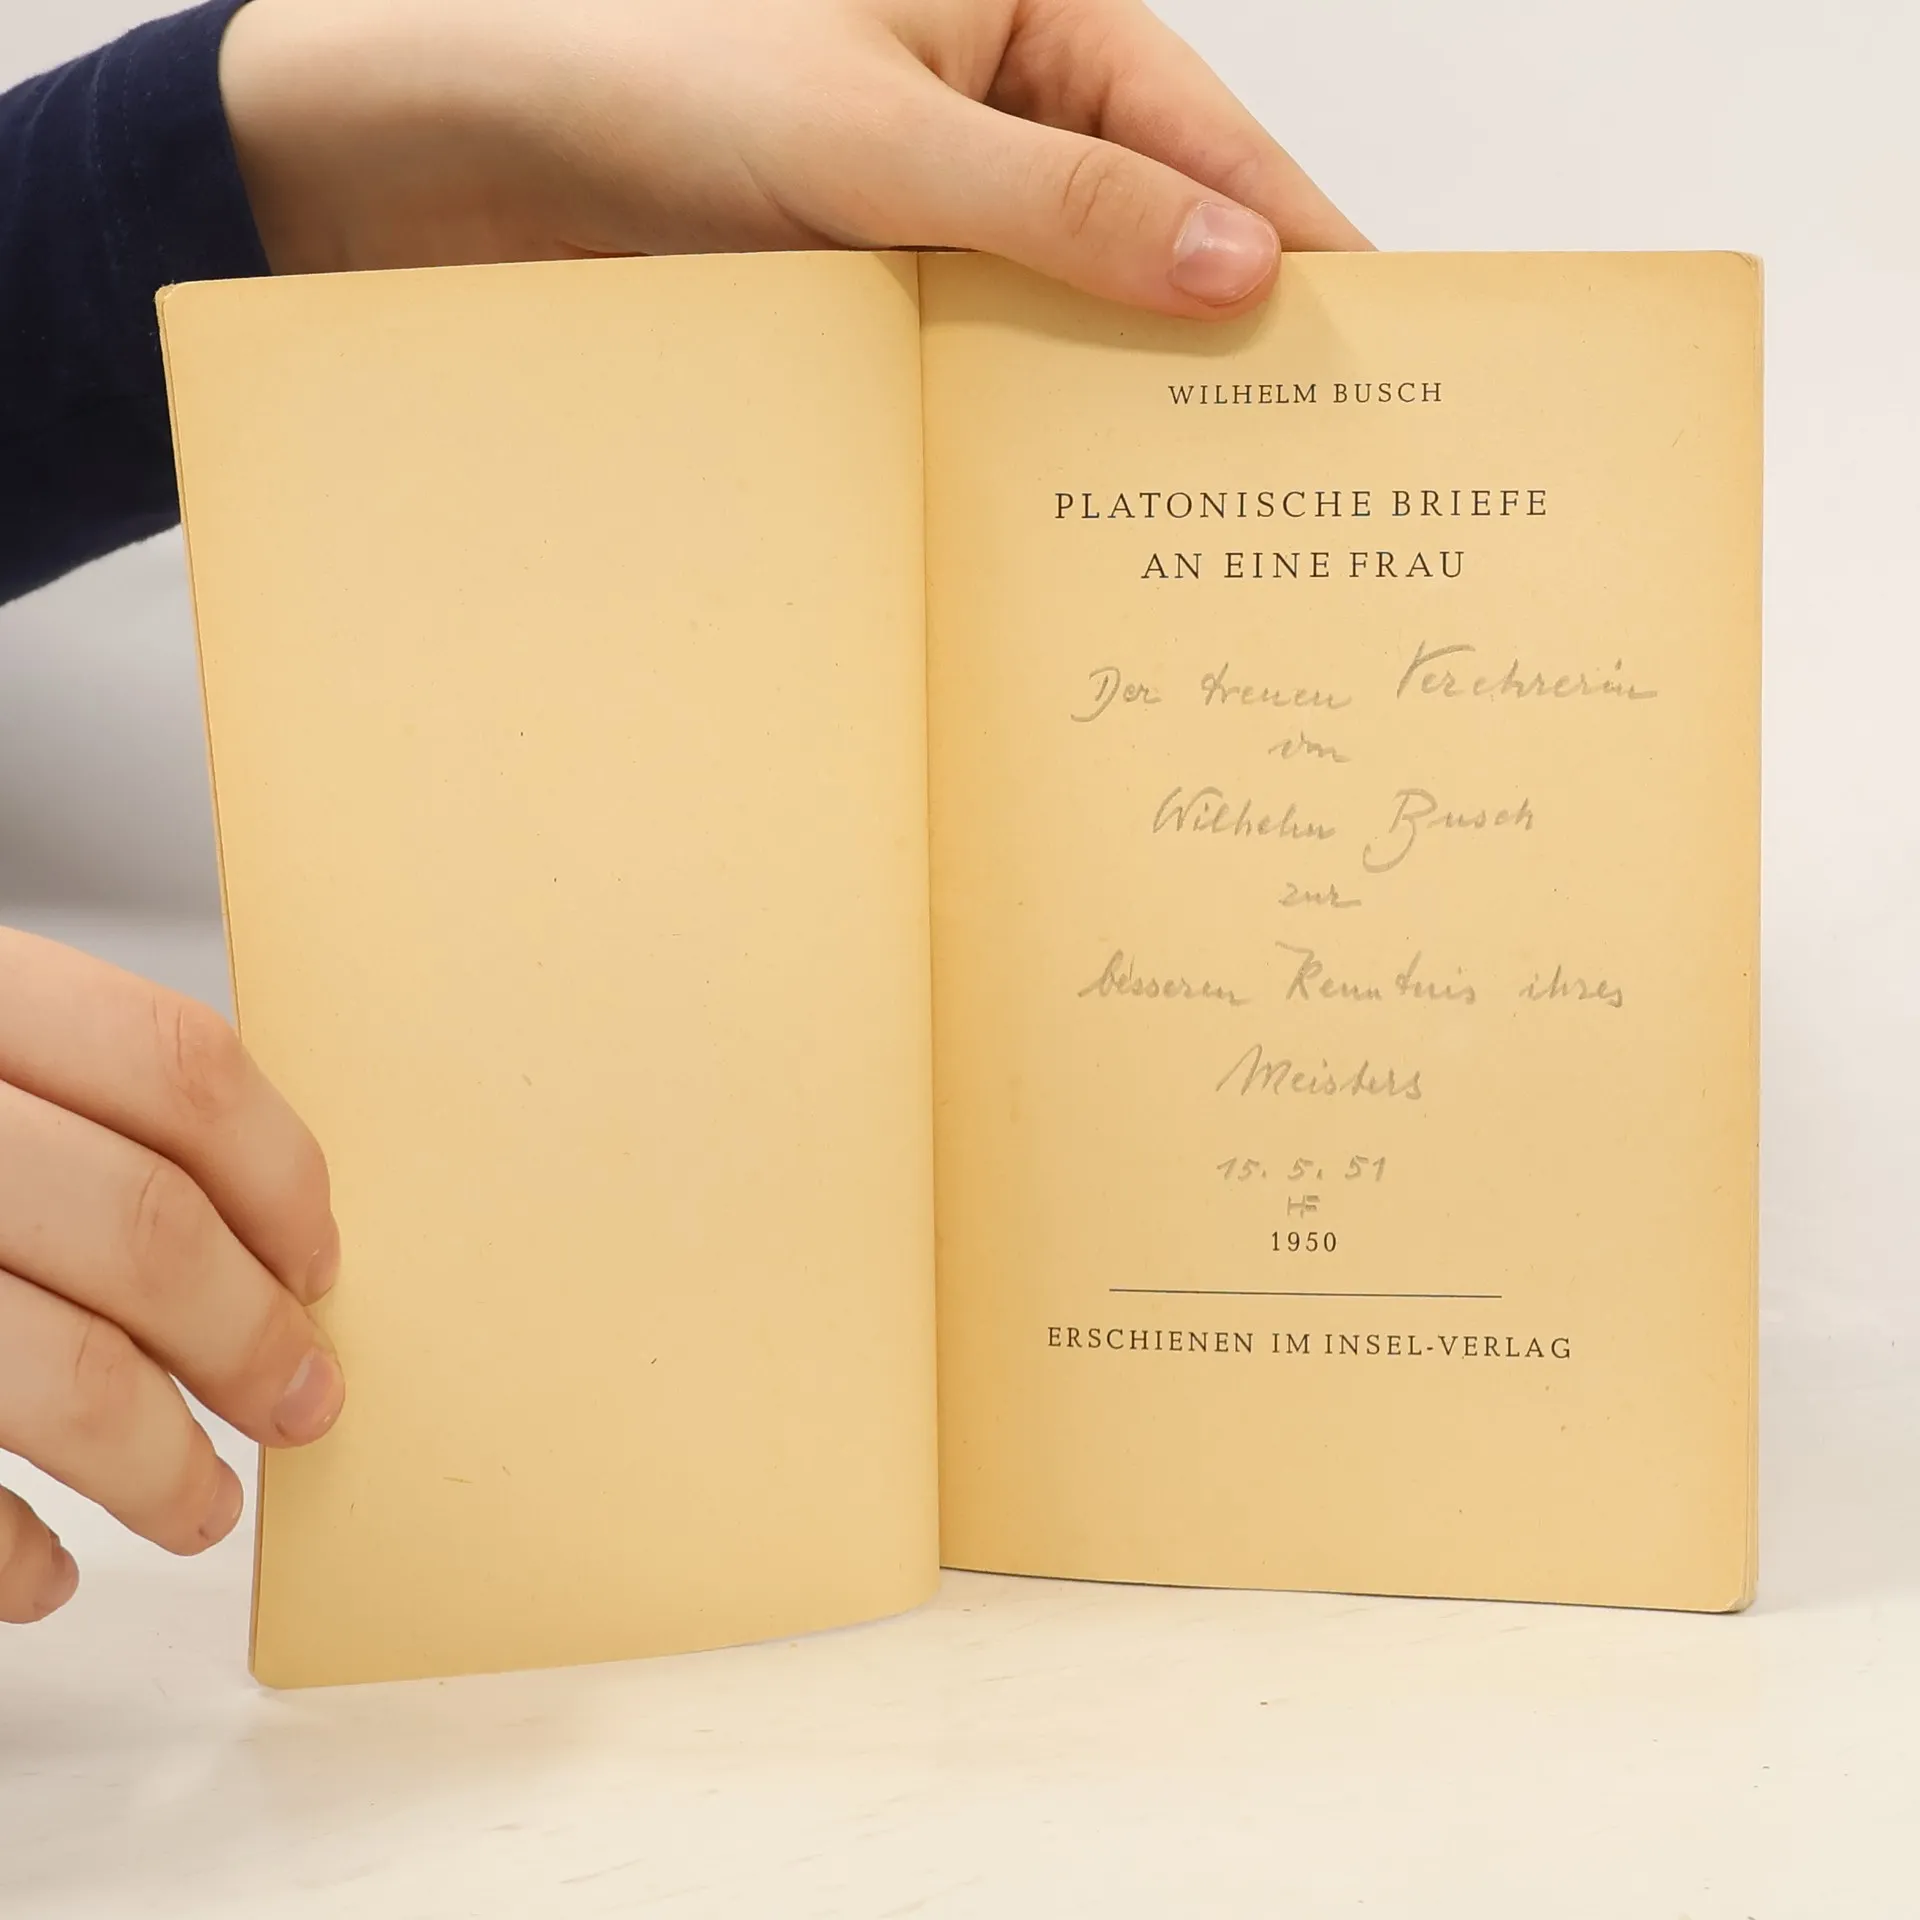 WILHELM BUSCH
PLATONISCHE BRIEFE
AN EINE FRAU
Der treuen Verehrerin
von
Wilhelm Busch
zur
besseren Kenntnis ihres
Meisters
15. 5. 51
HF
1950
ERSCHIENEN IM INSEL-VERLAG